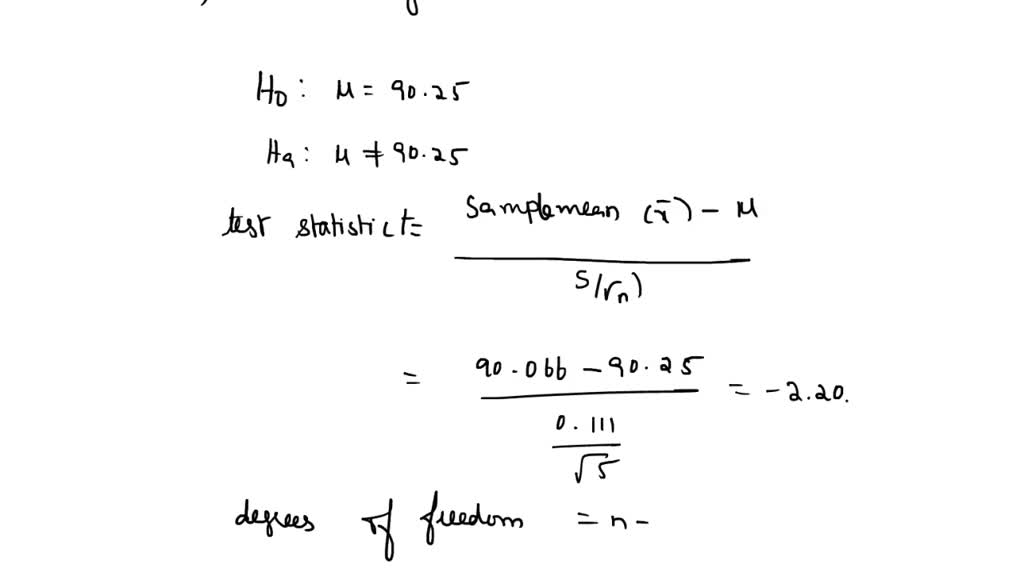 H0: μ = 90.25
Ha: μ ≠ 90.25
test statistic t = Sample mean (x̄) - μ
S/√n)
= 90.066 - 90.25 = -2.20.
0.111
√5
degrees of freedom = n -